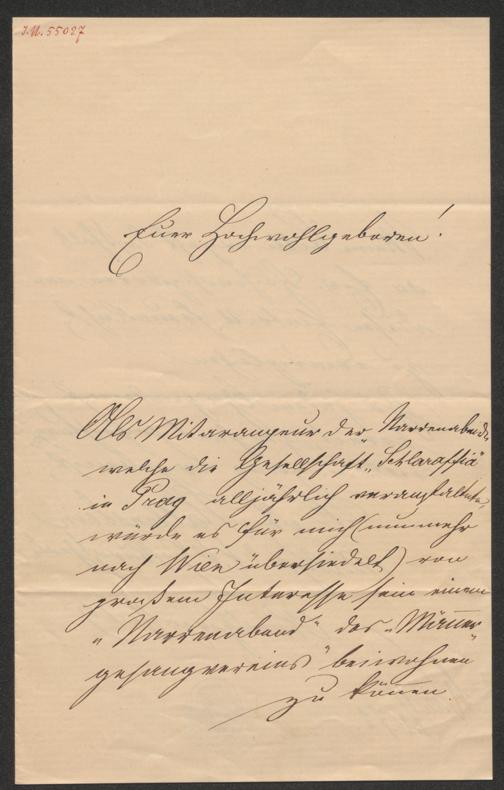 J.N. 55027
Euer Hochwohlgeboren!
Als Mitarangeur der Narrenabende,
welche die Gesellschaft „Schlaraffia"
in Prag alljährlich veranstaltete,
würde es für mich (nunmehr
nach Wien übersiedelt) von
großem Interesse sein einem
„Narrenabend" des „Männer
gesangvereins" beiwohnen
zu können.